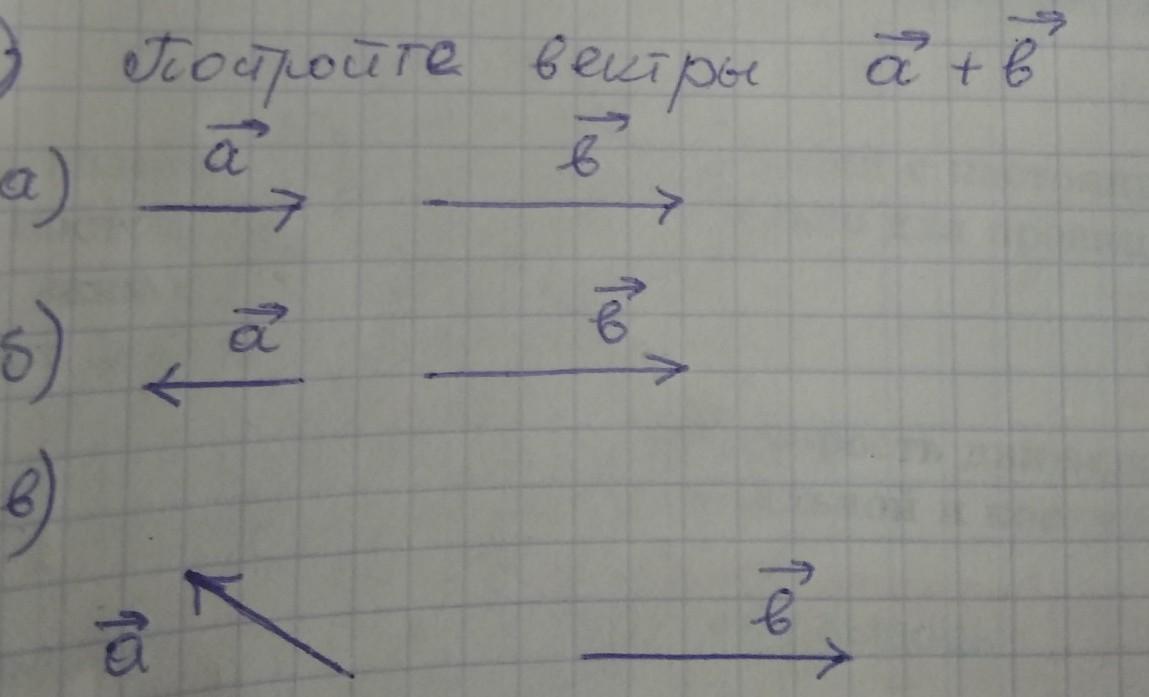 ) Постройте вектры a⃗ + в⃗
а) a⃗ в⃗
б) a⃗ в⃗
в)
a⃗ в⃗